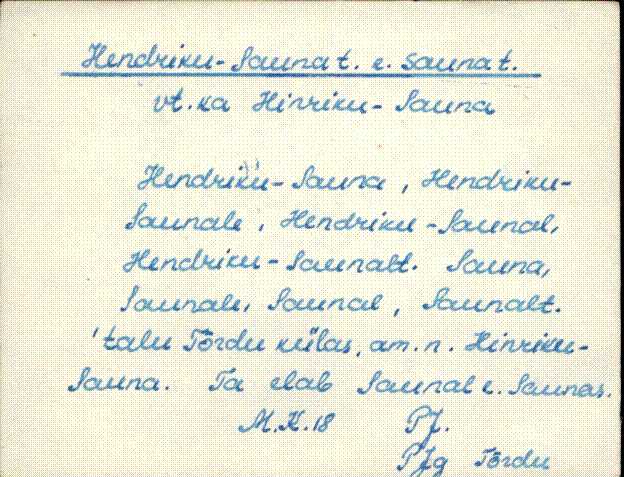 Hendriku-Sauna t. e. sauna t.
vt. ka Hinriku-Sauna
Hendriku-Sauna, Hendriku-
Saunale, Hendriku-Saunal,
Hendriku-Saunalt. Sauna,
Saunale, Saunal, Saunalt.
'talu Tõrdu külas, am. n. Hinriku-
Sauna. Ta elab Saunal e. Saunas.
M.K.18 PJ.
PJg Tõrdu